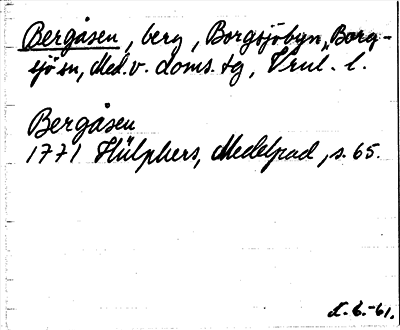 Bergåsen, berg, Borgsjöbyn, Borg-
sjö sn, Med. v. doms. tg, Vrnl. l.
Bergåsen
1771 Hülphers, Medelpad, s. 65.